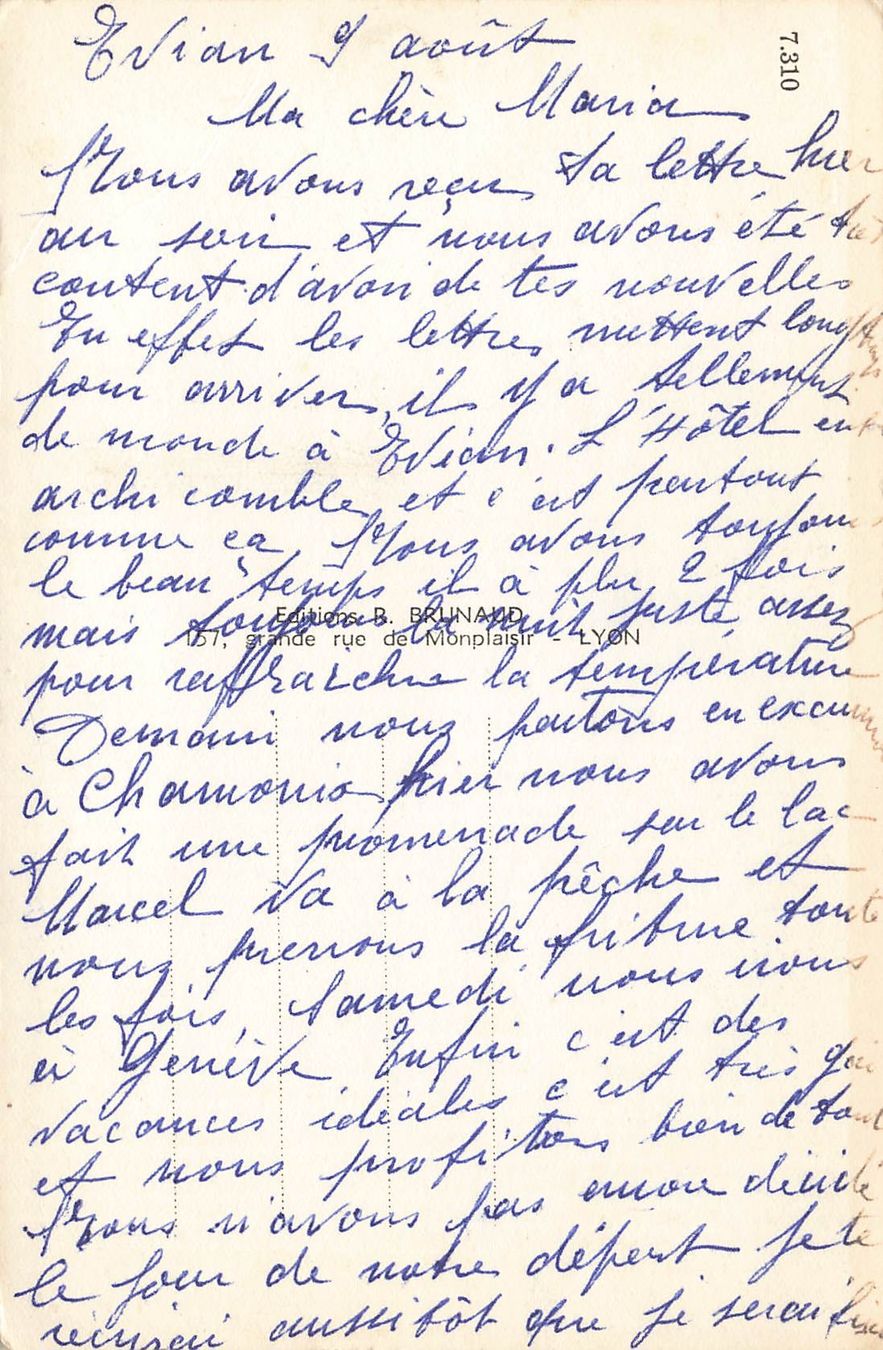 Evian 9 août
7.310
Ma chère Maria
Nous avons reçu ta lettre hier
au soir et nous avons été
content d'avoir de tes nouvelles
En effet les lettres mettent longtemps
pour arriver, il y a tellement
de monde à Evian. L'Hôtel est
archi comble et c'est partout
comme ça Nous avons toujours
le beau temps il à plu 2 fois
mais toujours la nuit juste assez
Editions R. BRUNAUD
157, grande rue de Monplaisir - LYON
pour raffraichir la température
Demain nous partons en excursion
à Chamonix hier nous avons
fait une promenade sur le lac
Marcel va à la pêche et
nous prenons la friture toute
les fois, Samedi nous irons
à Genève Enfin c'est des
vacances idéales c'est très gai
et nous profitons bien de tout
Nous n'avons pas encore décidé
le jour de notre départ Je te
écrirai aussitôt que je serai